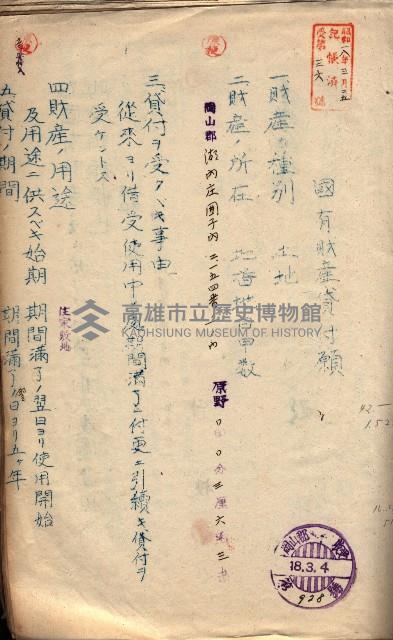 國有財産貸付願
一財産ノ種別 土地
二財産ノ所在 地番地目甲數
岡山郡 湖內庄圍子內二一五四番ノ一ノ內 原野
三貸付ヲ受クベキ事由
從來ヨリ借受使用中ノ處期間滿了ニ付更ニ引續キ貸付ヲ
受ケントス
四財產ノ用途 住家敷地
及用途ニ供スベキ始期 期間滿了ノ翌日ヨリ使用開始
五貸付ノ期間 期間滿了ノ翌日ヨリ五ヶ年
昭和一八年三月二五
記帳済
受第三六號
岡山郡
18.3.4
928
高雄市立歷史博物館
KAOHSIUNG MUSEUM OF HISTORY